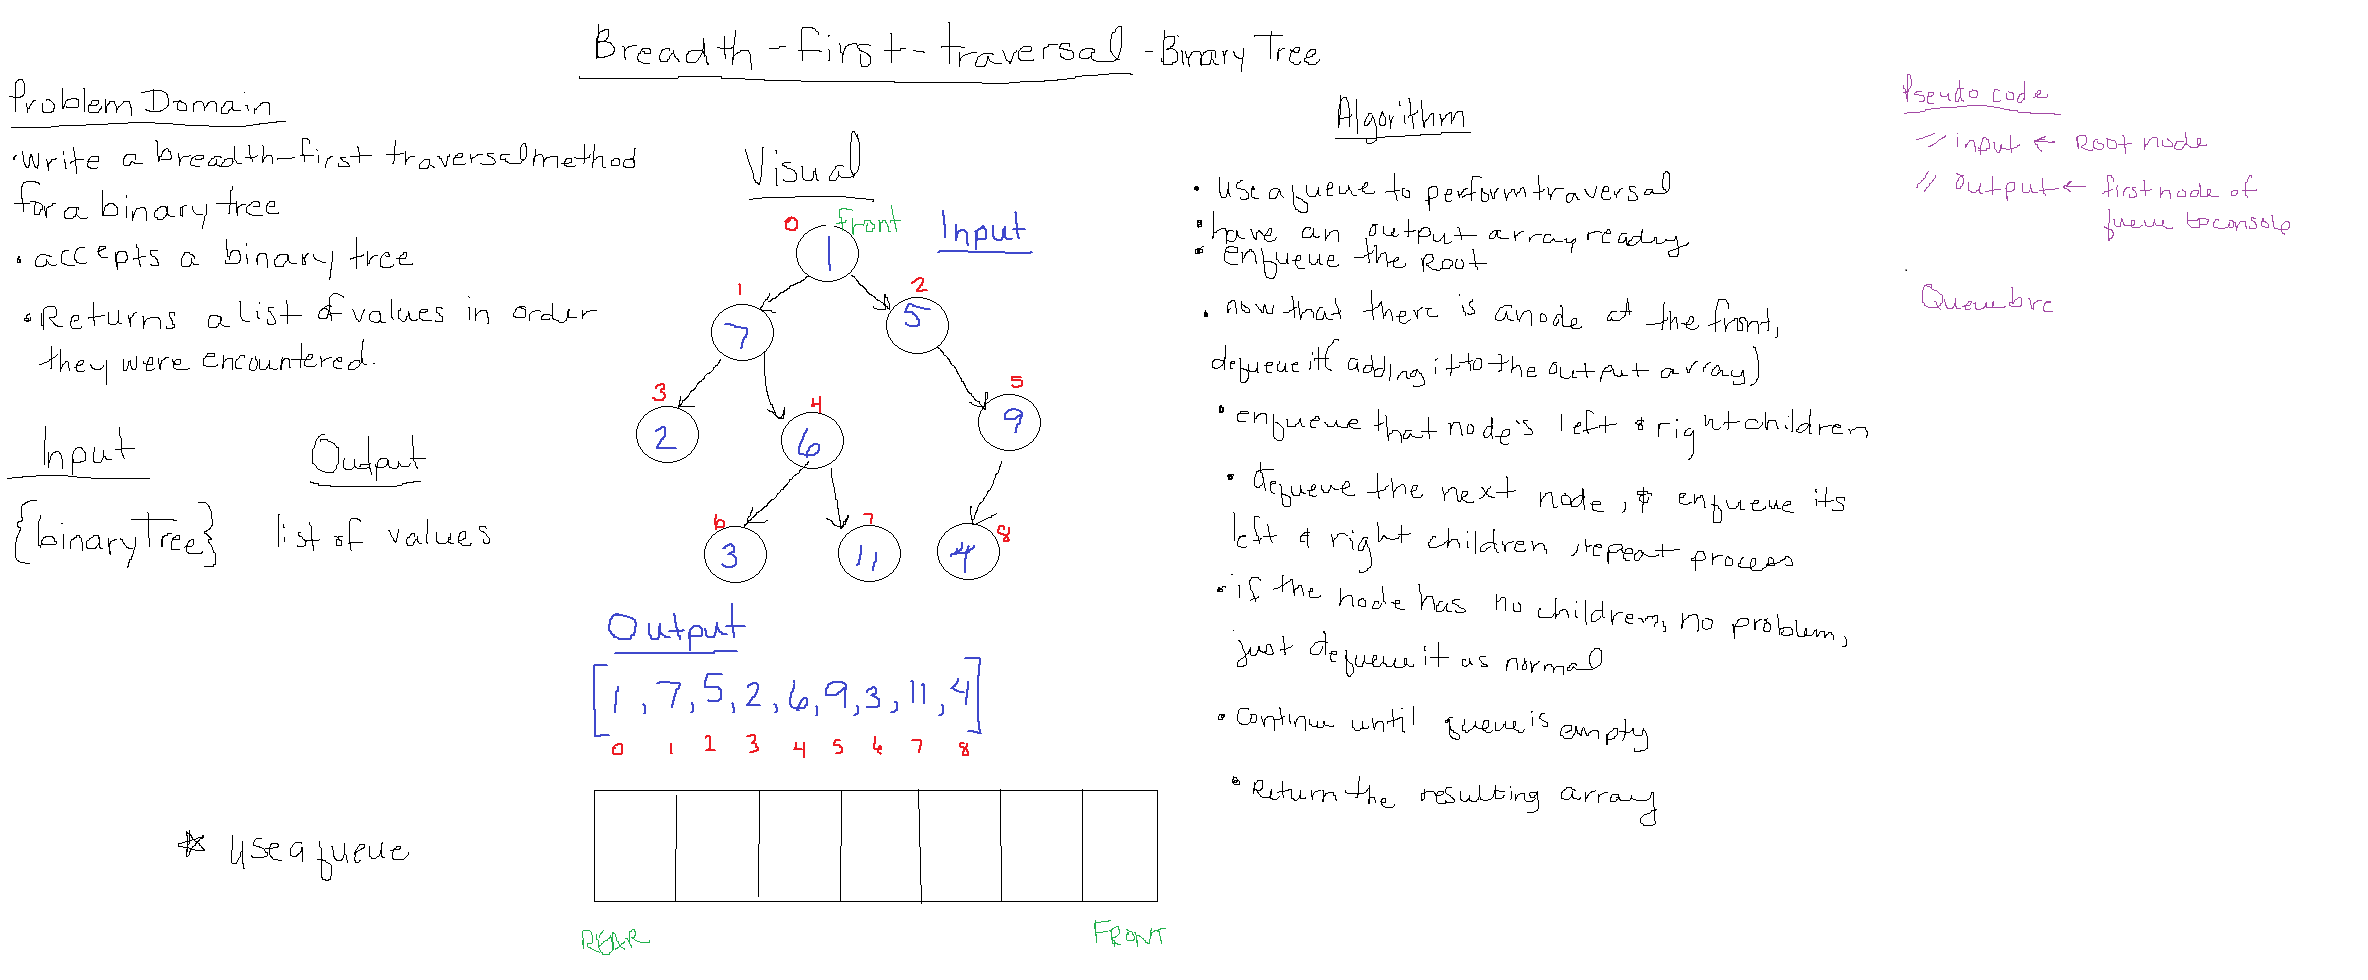 Breadth-first-traversal - Binary Tree
Problem Domain
• Write a breadth-first traversal method
for a binary tree
• accepts a binary tree
• Returns a list of values in order
they were encountered.
Input
Output
{binaryTree}
list of values
* use a queue
Visual
0
front
1
Input
1
2
7
5
3
4
5
2
6
9
6
7
8
3
11
4
Output
[1, 7, 5, 2, 6, 9, 3, 11, 4]
0 1 2 3 4 5 6 7 8
REAR
FRONT
Algorithm
• use a queue to perform traversal
• have an output array ready
• enqueue the Root
• now that there is a node at the front,
dequeue it (adding it to the output array)
• enqueue that node's left & right children
• dequeue the next node, & enqueue its
left & right children, repeat process
• if the node has no children, no problem,
just dequeue it as normal
• continue until queue is empty
• Return the resulting array
Pseudo code
// input ← Root node
// output ← first node of
queue to console